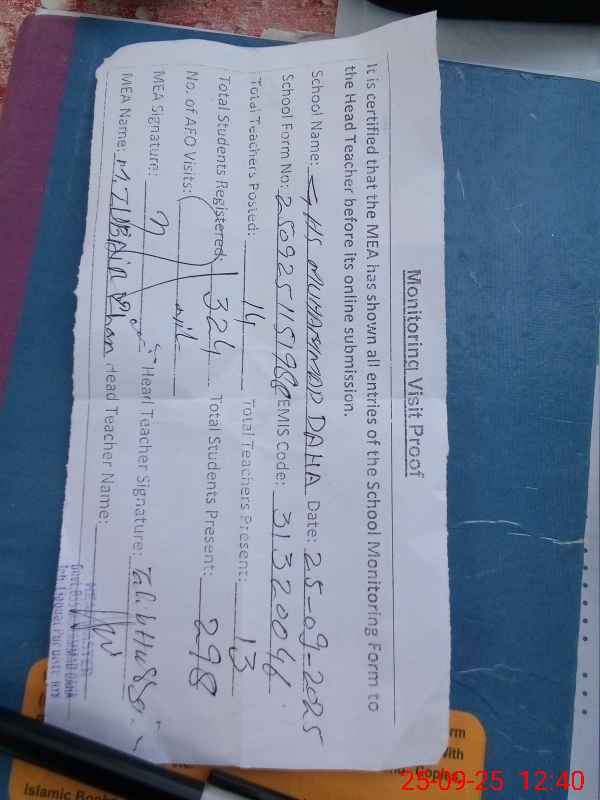 Monitoring Visit Proof
It is certified that the MEA has shown all entries of the School Monitoring Form to
the Head Teacher before its online submission.
School Name: GHS MUHAMMAD DAHA Date: 25-09-2025
School Form No: EMIS Code: 31320046
Total Teachers Posted: 14 Total Teachers Present: 13
Total Students Registered: 324 Total Students Present: 298
No. of AFO Visits: nil
MEA Signature: Head Teacher Signature: Talib Hussain
MEA Name: M. ZUBAIR Khan Head Teacher Name:
25-09-25 12:40
rm
with
Copies
Islamic Books